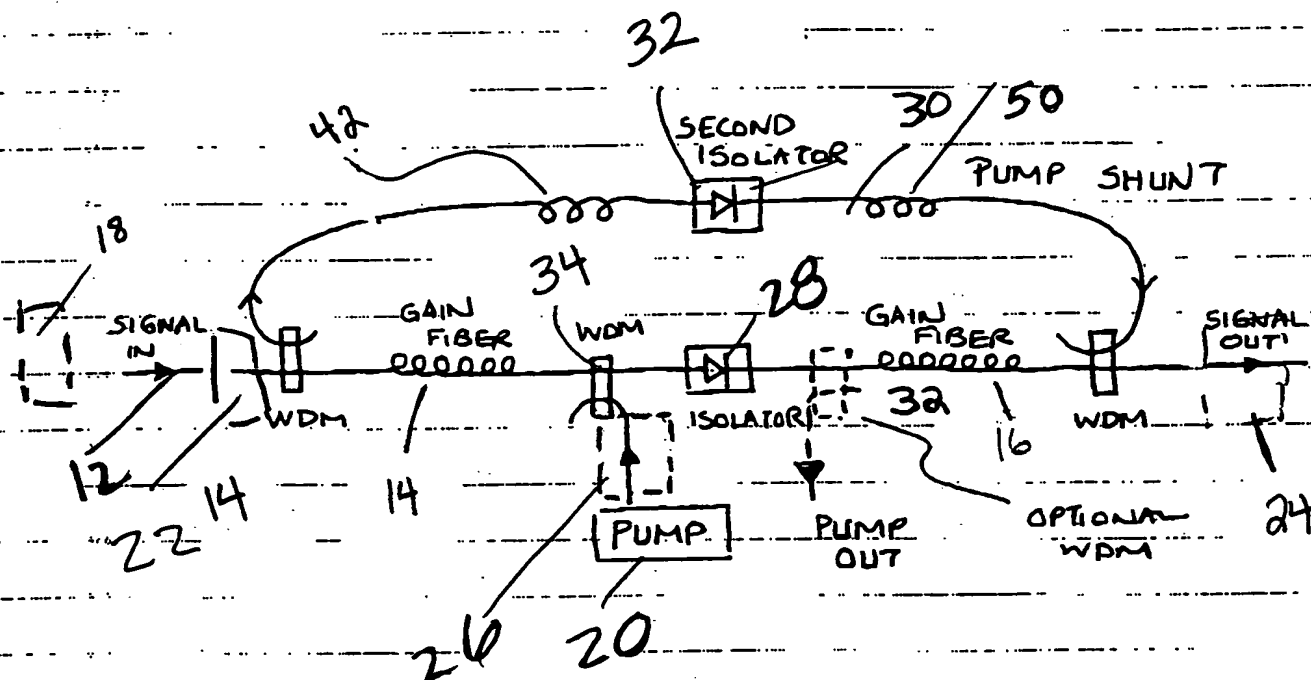 32
42
30
50
SECOND
ISOLATOR
PUMP SHUNT
18
34
28
SIGNAL
IN
GAIN
FIBER
WDM
GAIN
FIBER
SIGNAL
OUT
WDM
ISOLATOR
32
16
WDM
12
14
14
22
PUMP
PUMP
OUT
OPTIONAL
WDM
24
26
20